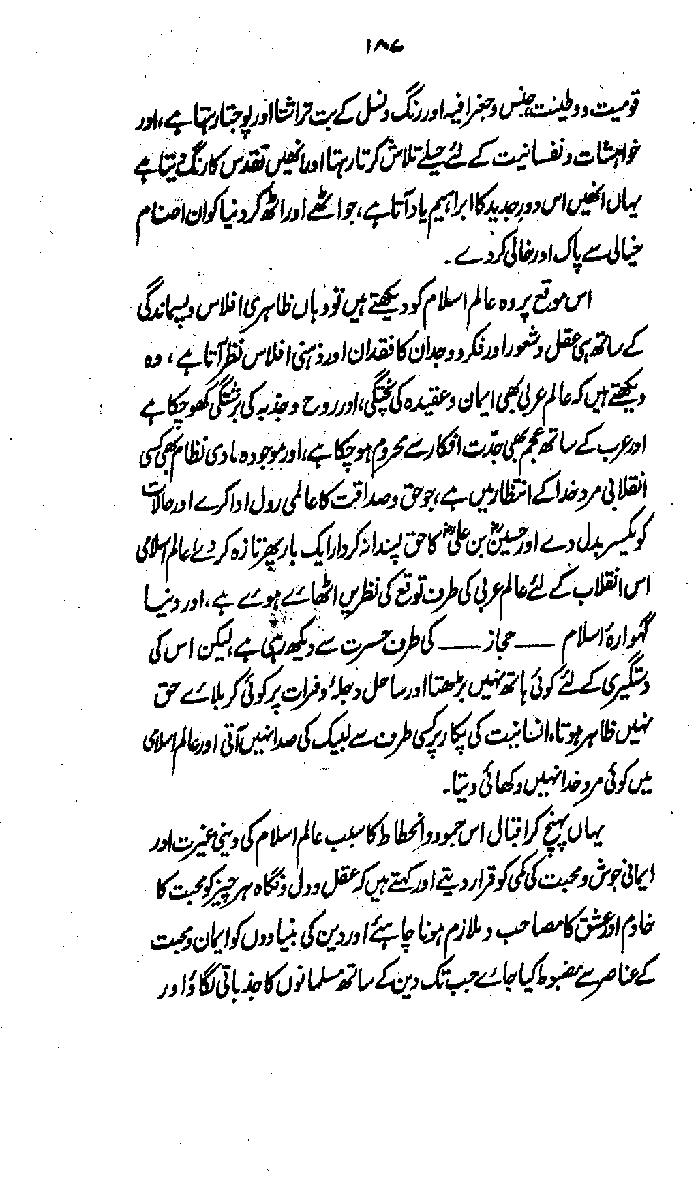 ۱۸۶
قومیت ووطنیت، جنس وجغرافیہ اور رنگ ونسل کے بت تراشتا اور پوجتا رہتا ہے، اور
خواہشات ونفسانیت کے لئے حیلے تلاش کرتا رہتا اور انھیں تقدس کا رنگ دیتا ہے
یہاں انھیں اس دور جدید کا ابراہیم یاد آتا ہے، جو اٹھے اور اٹھ کر دنیا کو ان اصنام
خیالی سے پاک اور خالی کردے۔
اس موقع پر وہ عالم اسلام کو دیکھتے ہیں تو وہاں ظاہری افلاس وپسماندگی
کے ساتھ ہی عقل وشعور اور فکر ووجدان کا فقدان اور ذہنی افلاس نظر آتا ہے، وہ
دیکھتے ہیں کہ عالم عربی بھی ایمان وعقیدہ کی پختگی، اور روح وجذبہ کی برشتگی کھو چکا ہے
اور عرب کے ساتھ عجم بھی جدّت افکار سے محروم ہو چکا ہے، اور موجودہ مادی نظام بھی کسی
انقلابی مرد خدا کے انتظار میں ہے، جو حق وصداقت کا عالمی رول ادا کرے اور حالات
کو یکسر بدل دے اور حسینؓ بن علیؓ کا حق پسندانہ کردار ایک بار پھر تازہ کر دے، عالم اسلامی
اس انقلاب کے لئے عالم عربی کی طرف توقع کی نظریں اٹھاے ہوے ہے، اور دنیا
گہوارۂ اسلام ــــ حجاز ــــ کی طرف حسرت سے دیکھ رہی ہے، لیکن اس کی
دستگیری کے لئے کوئی ہاتھ نہیں بڑھتا اور ساحل دجلہ وفرات پر کوئی کربلاے حق
نہیں ظاہر ہوتا، انسانیت کی پکار پر کسی طرف سے لبیک کی صدا نہیں آتی اور عالم اسلامی
میں کوئی مرد خدا نہیں دکھائی دیتا۔
یہاں پہنچ کر اقبال اس جمود وانحطاط کا سبب عالم اسلام کی دینی غیرت اور
ایمانی جوش ومحبت کی کمی کو قرار دیتے اور کہتے ہیں کہ عقل ودل ونگاہ ہر چیز کو محبت کا
خادم اور عشق کا مصاحب وملازم ہونا چاہئے اور دین کی بنیادوں کو ایمان ومحبت
کے عناصر سے مضبوط کیا جاے جب تک دین کے ساتھ مسلمانوں کا جذباتی لگاؤ اور